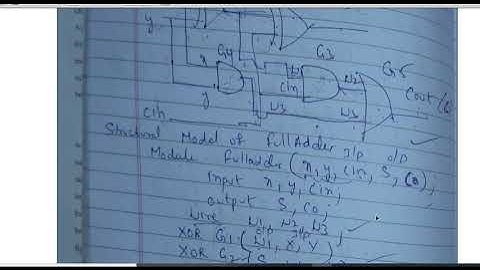 y
G4
x
G3
G5
N1
N2
Cin
Cout (Co)
y
N3
N3
Cin
Structural Model of FullAdder i/p o/p
Module fulladder (x, y, Cin, S, Co);
input x, y, Cin;
output S, Co;
wire N1, N2, N3;
o/p i/p
XOR G1 (N1, X, Y)
XOR G2